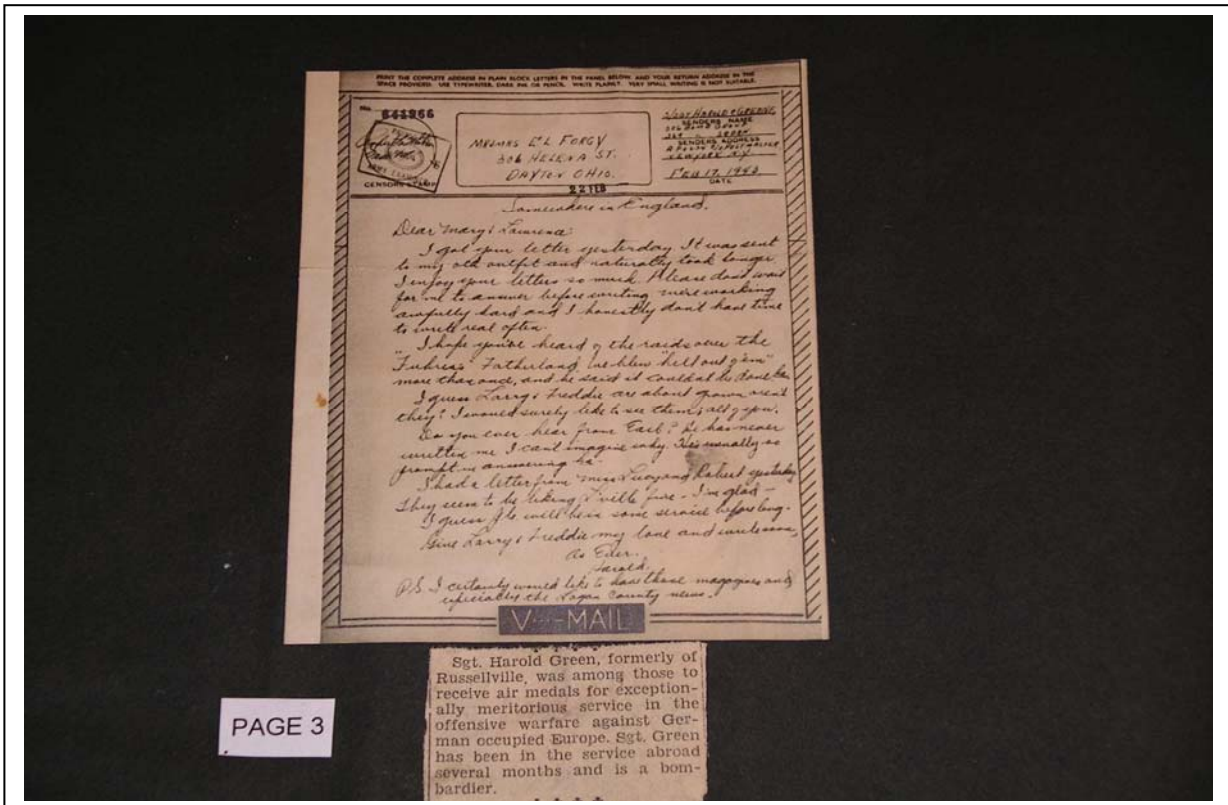 PRINT THE COMPLETE ADDRESS IN PLAIN BLOCK LETTERS IN THE PANEL BELOW, AND YOUR RETURN ADDRESS IN THE
SPACE PROVIDED. USE TYPEWRITER, DARK INK OR PENCIL. WRITE PLAINLY. VERY SMALL WRITING IS NOT SUITABLE.
No.
641966
CENSOR'S STAMP
DAYTON OHIO.
306 HELENA ST.
SENDER'S NAME
SENDER'S ADDRESS
NEW YORK N.Y.
FEB 17, 1943
DATE
22 FEB
Somewhere in England.
Dear Mary & Lawrence:
I got your letter yesterday. It was sent
to my old outfit and naturally took longer.
I enjoy your letters so much. Please don't wait
for me to answer before writing. We're working
awfully hard and I honestly don't have time
to write real often.
I hope you've heard of the raids over the
Fatherland. We blew "hell out of 'em"
more than once, and he said it couldn't be done
I guess Larry & Freddie are about grown aren't
they? I would surely like to see them, all of you.
Do you ever hear from He has never
written me. I can't imagine why. He's usually so
prompt in answering
I had a letter from Miss Lucy and Robert yesterday
They seem to be liking L'ville fine - I'm glad -
I guess will be in some service before long.
Give Larry & Freddie my love and write soon,
As Ever.
Harold.
P.S. I certainly would like to have those magazines and
especially the Logan County news.
V···-MAIL
Sgt. Harold Green, formerly of
Russellville, was among those to
receive air medals for exception-
ally meritorious service in the
offensive warfare against Ger-
man occupied Europe. Sgt. Green
has been in the service abroad
several months and is a bom-
bardier.
PAGE 3